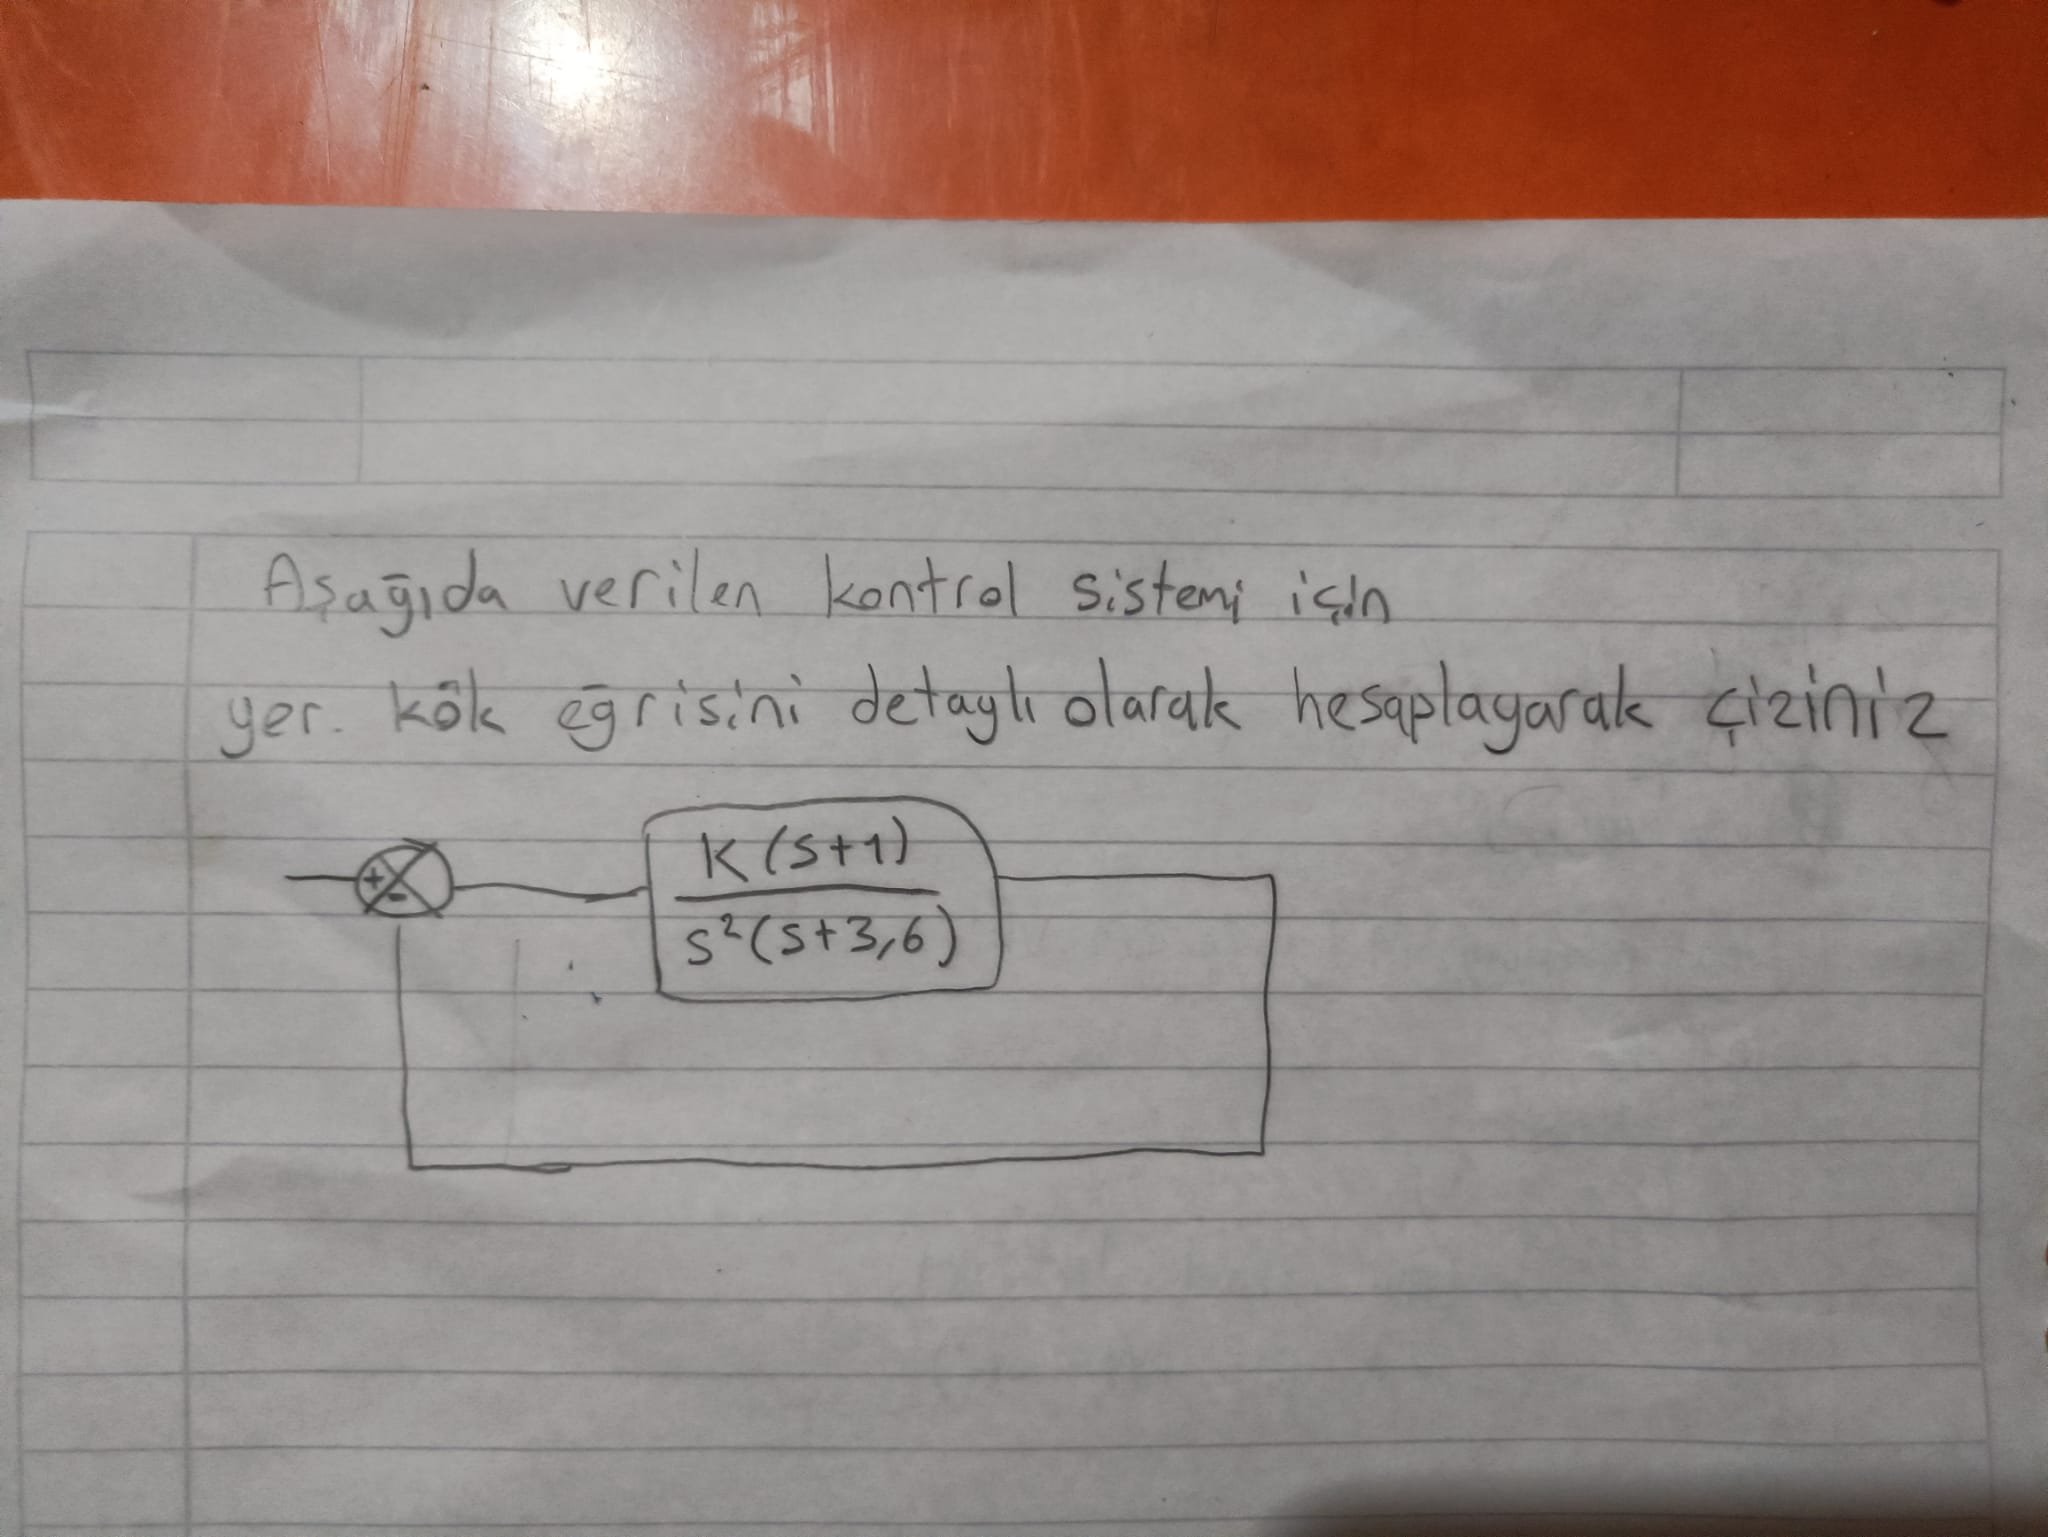 Aşağıda verilen kontrol sistemi için
yer. kök eğrisini detaylı olarak hesaplayarak çiziniz
K(s+1)
+
-
s²(s+3,6)